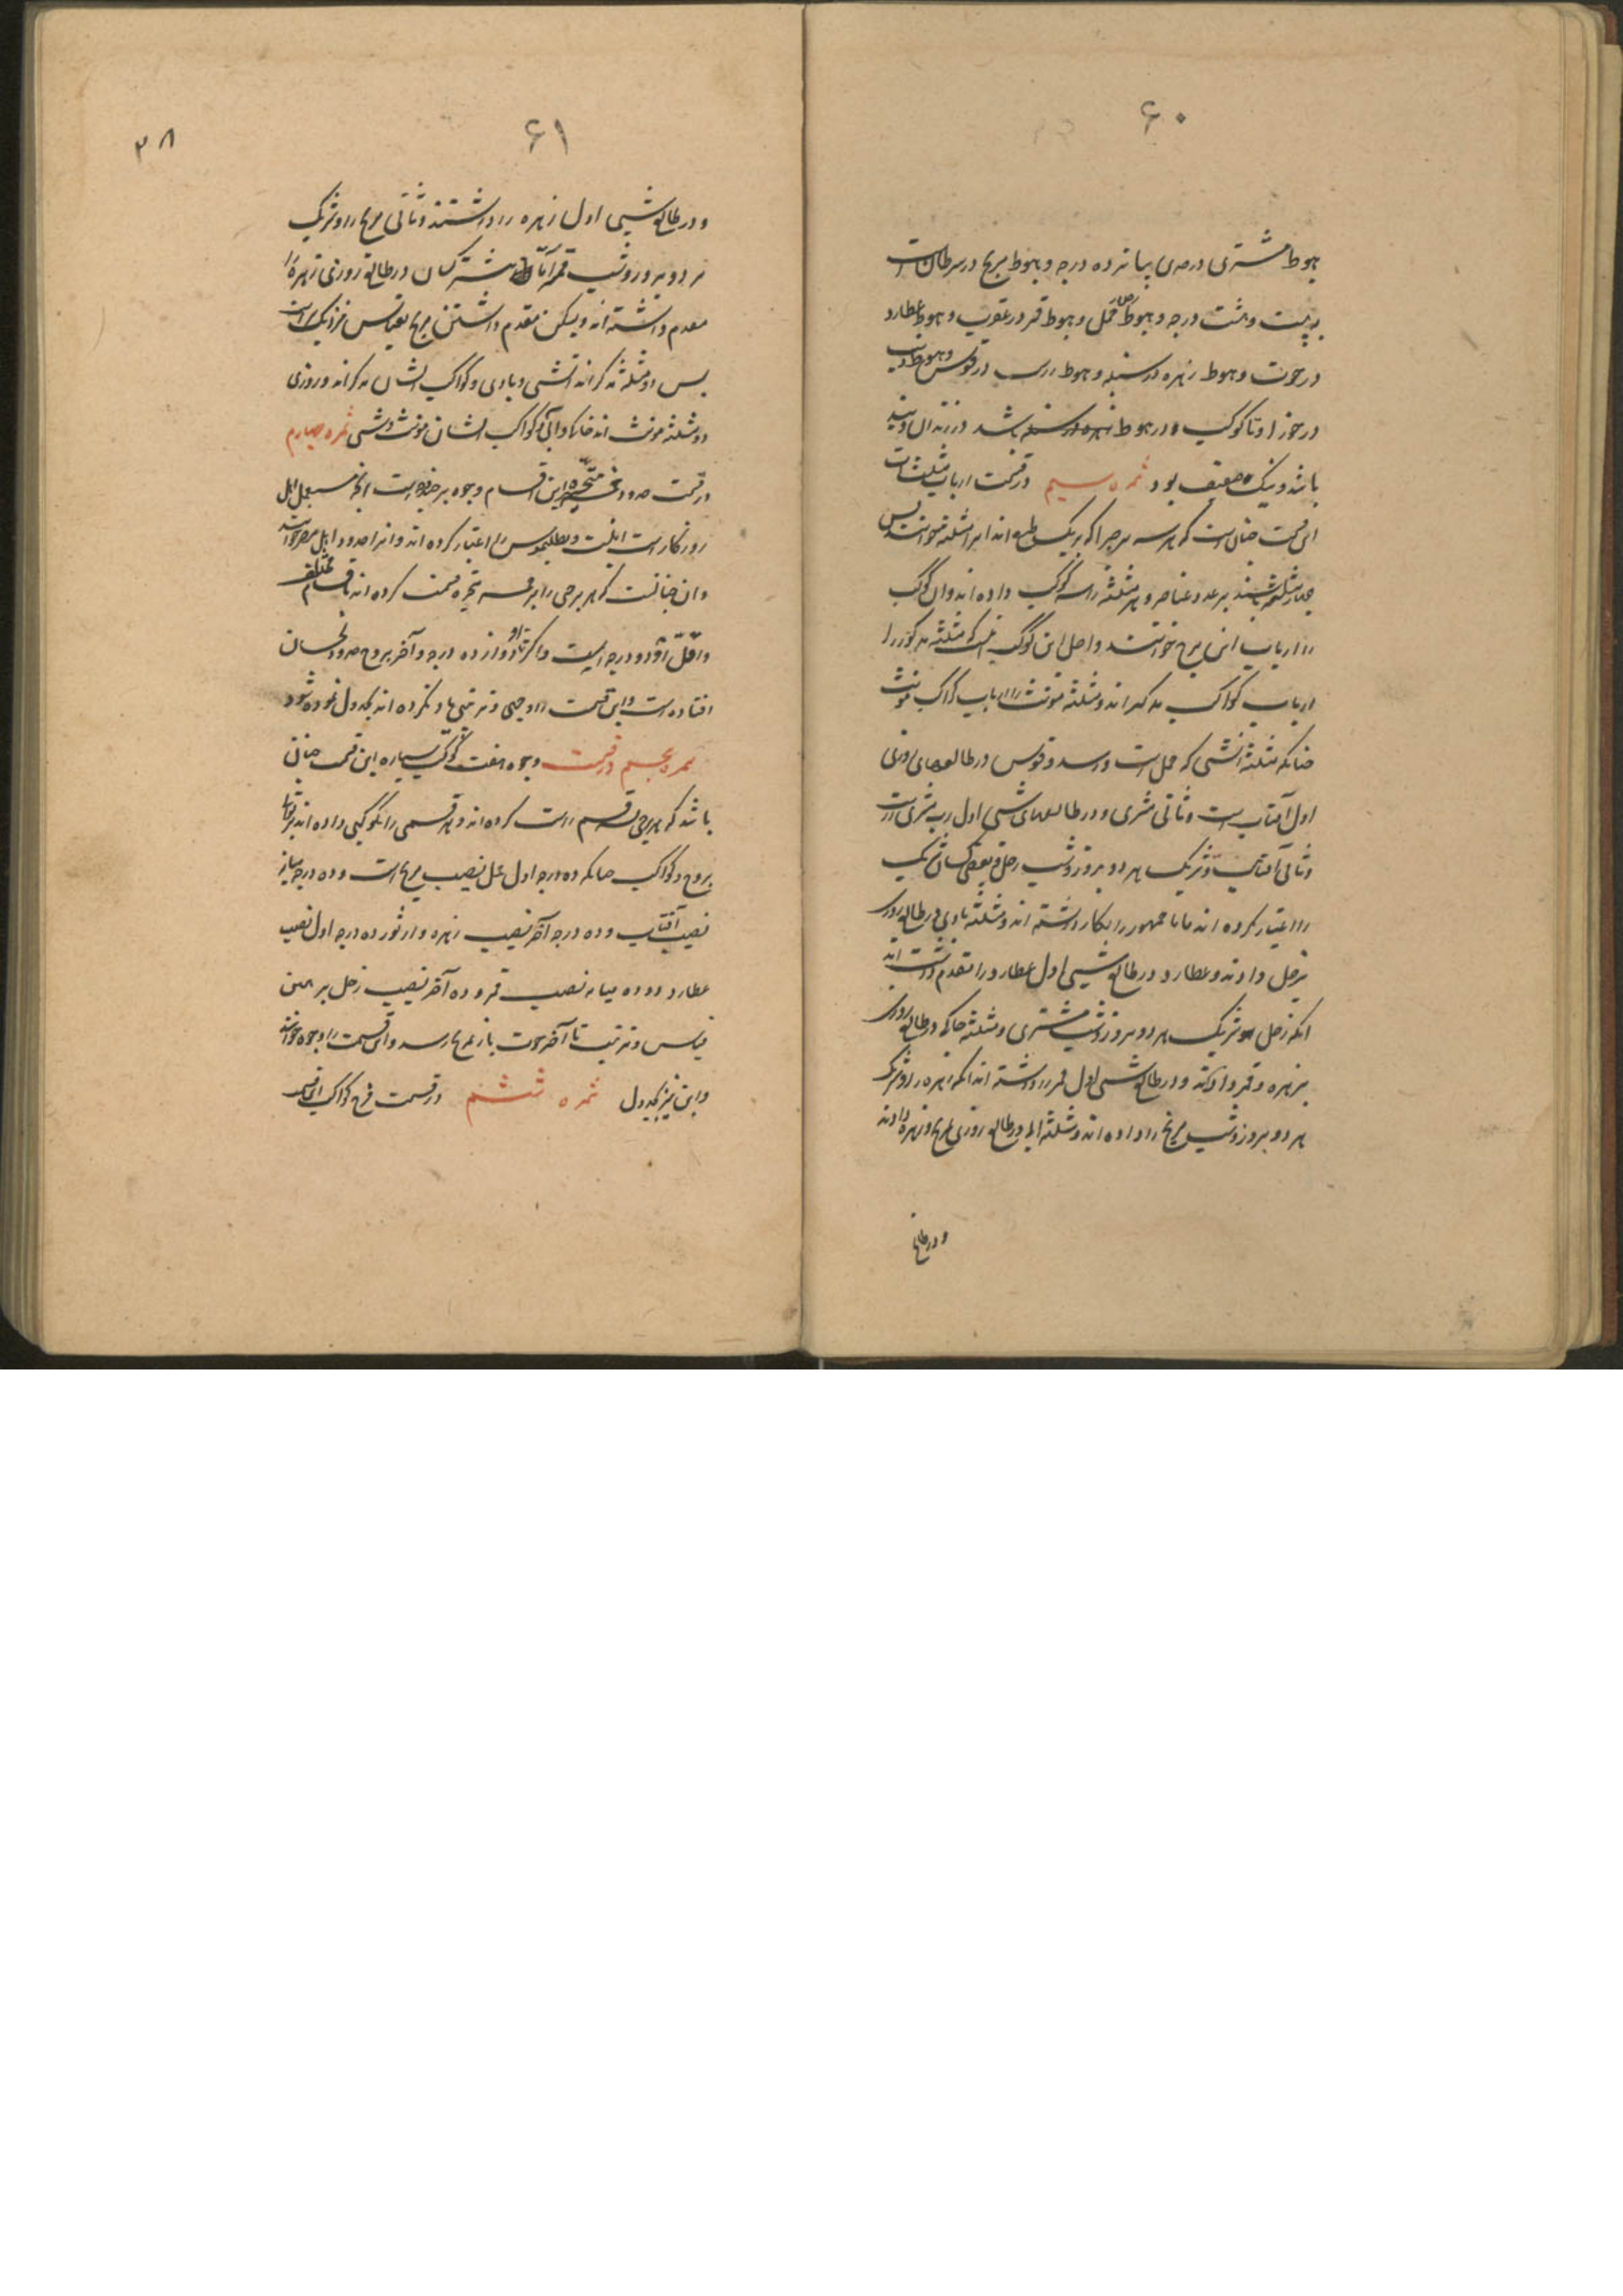 ۶۰
هبوط مشتری در جدی بپانزده درجه و هبوط مریخ در سرطان است
به بیست و هشت درجه و هبوط زحل حمل و هبوط قمر در عقرب و هبوط عطارد
در حوت و هبوط زهره در سنبله و هبوط راس در قوس و هبوط ذنب
در جوزا و تا کوکب در هبوط باشد در نزد ال
باشد و نیک ضعیف بود ثمره سیم در قسمت ارباب مثلثات
این قسمت چنان است که هر سه برج را که بر یک طبع اند آنرا مثلثه خوانند پس
چهار مثلثه باشند بر عدد عناصر و هر مثلثه را سه کوکب داده اند و آن کوکب
را ارباب این برج خوانند و اصل این کوکب
ارباب کواکب مذکر اند و مثلثه مونث را ارباب کواکب مونث
چنانکه مثلثه آتشی که حمل است و اسد و قوس در طالعهای روزی
اول آفتاب است و ثانی مشتری و در طالعهای شبی اول رب مشتری است
و ثانی آفتاب و شریک هر دو بروز و شب زحل و بعضی کسان شریک
را اعتبار نکرده اند اما جمهور را بکار داشته اند و مثلثه بادی در طالع روزی
بزحل دادند و عطارد و در طالع شبی اول عطارد را مقدم داشته اند
آنکه زحل و شریک هر دو بروز و شب مشتری و مثلثه خاکی در طالع روزی
بزهره و قمر دادند و در طالع شبی اول قمر را داشته اند آنکه زهره را و شریک
هر دو بروز و شب مریخ را داده اند و مثلثه آبی در طالع روزی مریخ و زهره دادند
و در طالع
۶۱
۳۸
و در طالع شبی اول زهره را داشتند و ثانی مریخ را و شریک
هر دو بروز و شب قمر اما بیشتر کسان در طالع روزی زهره را
مقدم داشته اند و لیکن مقدم داشتن مریخ بقیاس نزدیک است
پس دو مثلثه مذکر اند آتشی و بادی و کواکب ایشان مذکر اند و روزی
دو مثلثه مونث اند خاکی و آبی و کواکب ایشان مونث و شبی ثمره چهارم
در قسمت حدود خمسه متحیره این اقسام وجوه بر چند است آنچه مستعمل اهل
روزگار است اینست و بطلیموس را اعتبار کرده اند و آنرا حدود اهل مصر خوانند
و آن چنانست که هر برجی را بر خمسه متحیره قسمت کرده اند باقسام مختلف
و اقل او دو درجه ایست و اکثر او دوازده درجه و آخر بروج حدود نحسان
افتاده است و این قسمت را وجهی و ترتیبی یاد نکرده اند بجدول نموده شود
ثمره پنجم در قسمت وجوه هفت کوکب سیاره این قسمت چنان
باشد که هر برجی سه قسم راست کرده اند و هر قسمی را بکوکبی داده اند بر توالی
بروج و کواکب چنانکه ده درجه اول حمل نصیب مریخ است و ده درجه میانه
نصیب آفتاب و ده درجه آخر نصیب زهره و از ثور ده درجه اول نصیب
عطارد و ده میانه نصیب قمر و ده آخر نصیب زحل بر همین
قیاس و ترتیب تا آخر حوت باز بمریخ رسد و این قسمت را وجوه خوانند
و این نیز بجدول ثمره ششم در قسمت فرح کواکب